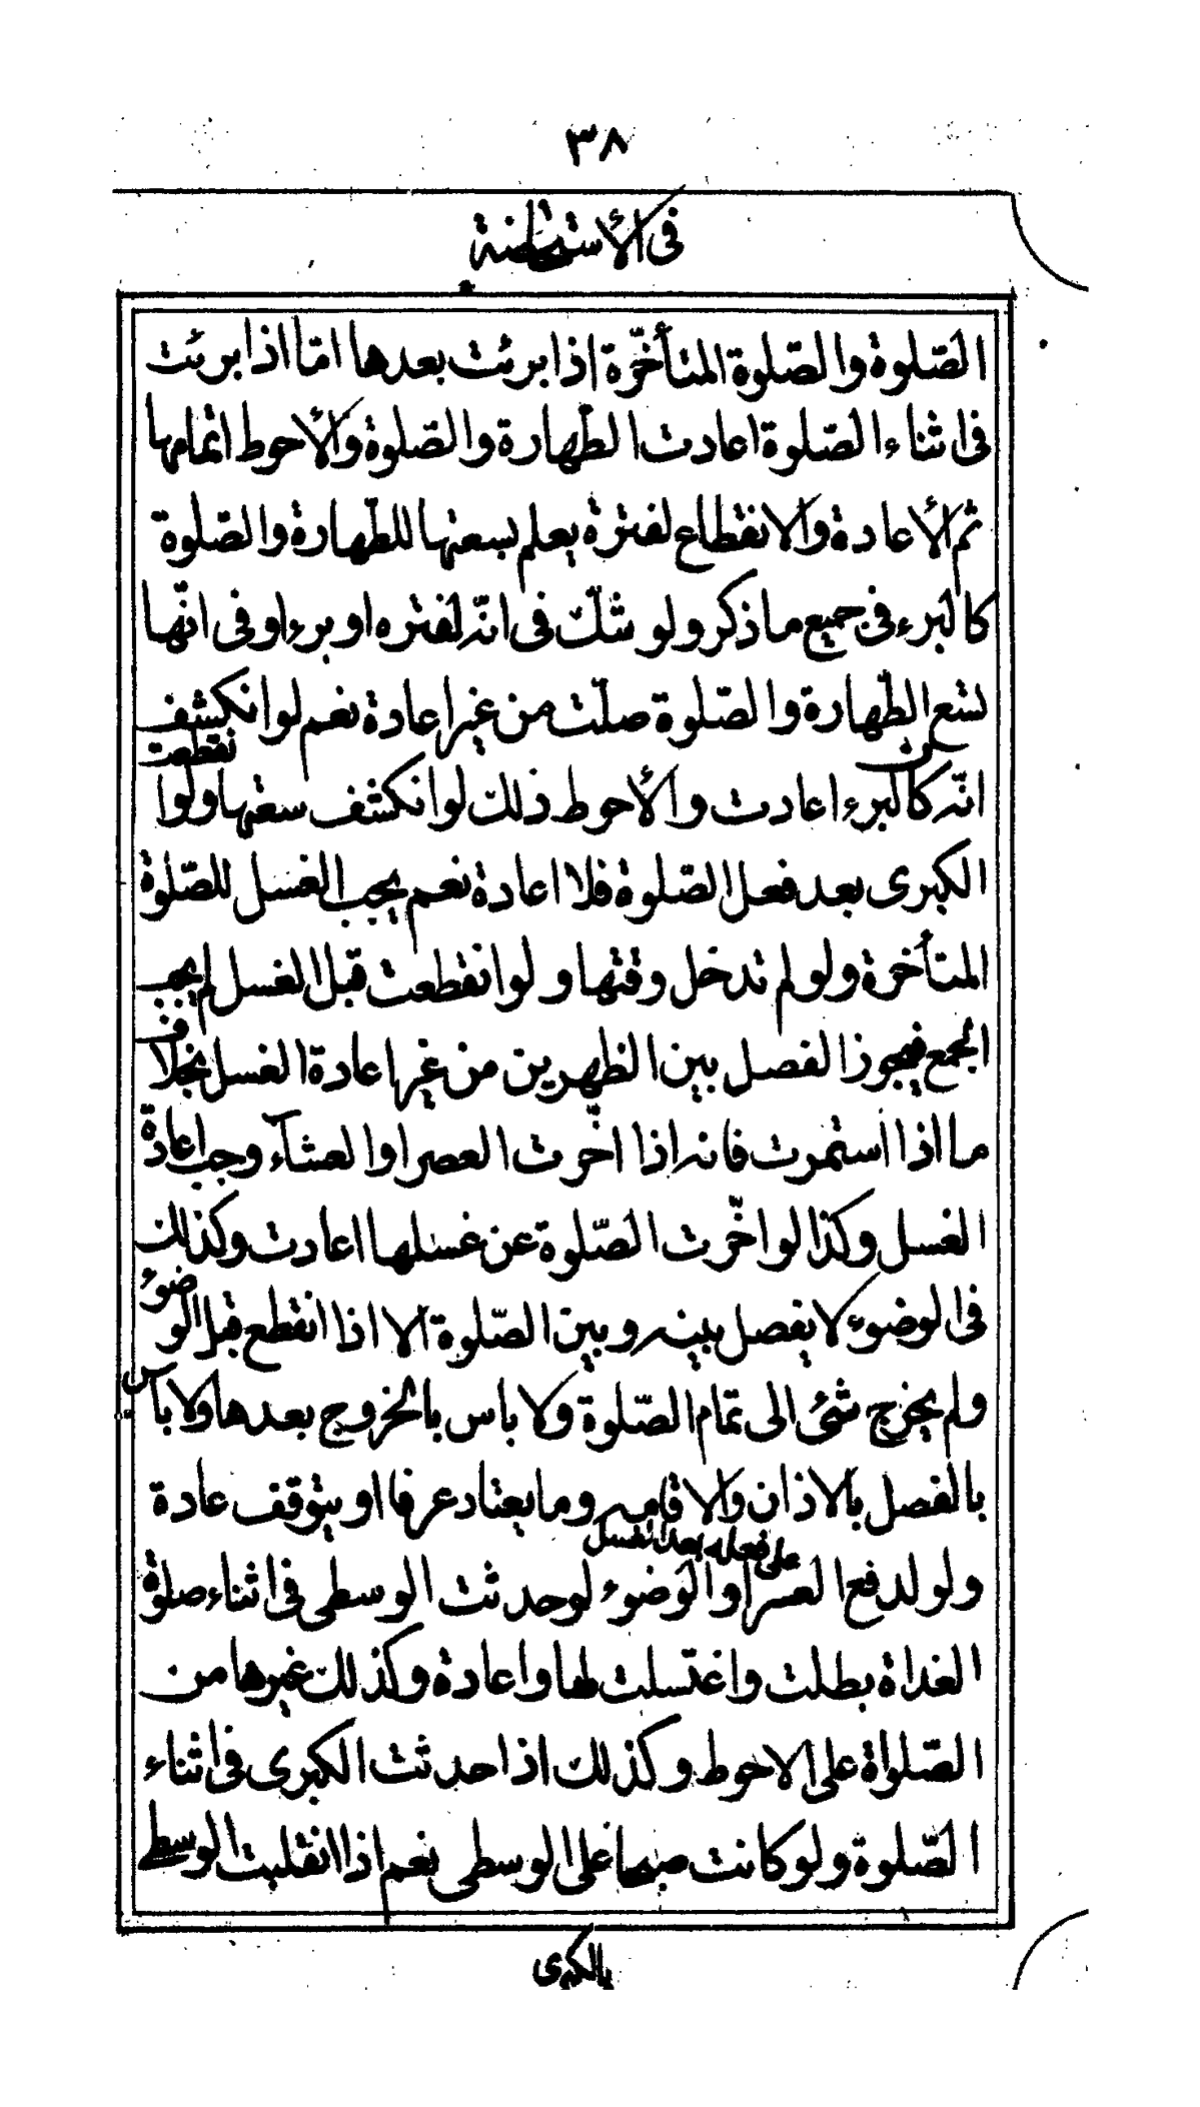 ٣٨
فى الأستحاضة
الصّلوة والصّلوة المتأخّرة اذا برئت بعدها امّا اذا برئت
فى اثناء الصّلوة اعادت الطّهارة والصّلوة والأحوط اتمامها
ثم الأعادة والانقطاع لفترة يعلم بسعتها للطّهارة والصّلوة
كالبرء فى جميع ما ذكر ولو شكّ فى انّه لفتره او برء او فى انّها
تسع الطّهارة والصّلوة صلّت من غير اعادة نعم لو انكشف
انّه كالبرء اعادت والأحوط ذلك لو انكشف سعتها ولو انقطعت
الكبرى بعد فعل الصّلوة فلا اعادة نعم يجب الغسل للصّلوة
المتأخرة ولو لم تدخل وقتها ولو انقطعت قبل الغسل لم يجب
الجمع فيجوز الفصل بين الظهرين من غير اعادة الغسل بخلاف
ما اذا استمرت فانه اذا اخّرت العصر او العشاء وجب اعادة
الغسل وكذا لو اخّرت الصّلوة عن غسلها اعادت وكذلك
فى الوضوء لا يفصل بينه وبين الصّلوة الا اذا انقطع قبل الوضوء
ولم يخرج شئ الى تمام الصّلوة ولا باس بالخروج بعدها ولا باس
بالفصل بالاذان والاقامه وما يعتاد عرفا او يتوقف عادة
على فعله بعد الغسل
ولو لدفع العسر او الوضوء لو حدثت الوسطى فى اثناء صلوة
الغداة بطلت واغتسلت لها واعادة وكذلك غيرها من
الصّلواة على الاحوط وكذلك اذا حدثت الكبرى فى اثناء
الصّلوة ولو كانت صبحا على الوسطى نعم اذا انقلبت الوسطى
بالكبرى